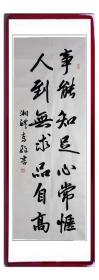 事能知足心常惬
人到無求品自高
湘潭李铎書